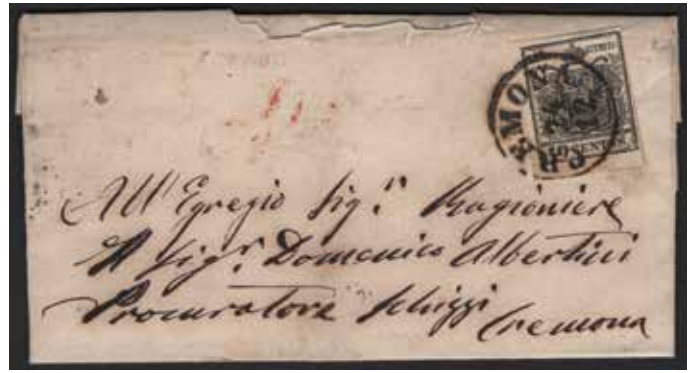 CREMONA
CENTES
All' Egregio Sigr. Ragioniere
Il Sigr. Domenico Albertini
Procuratore Schizzi
Cremona